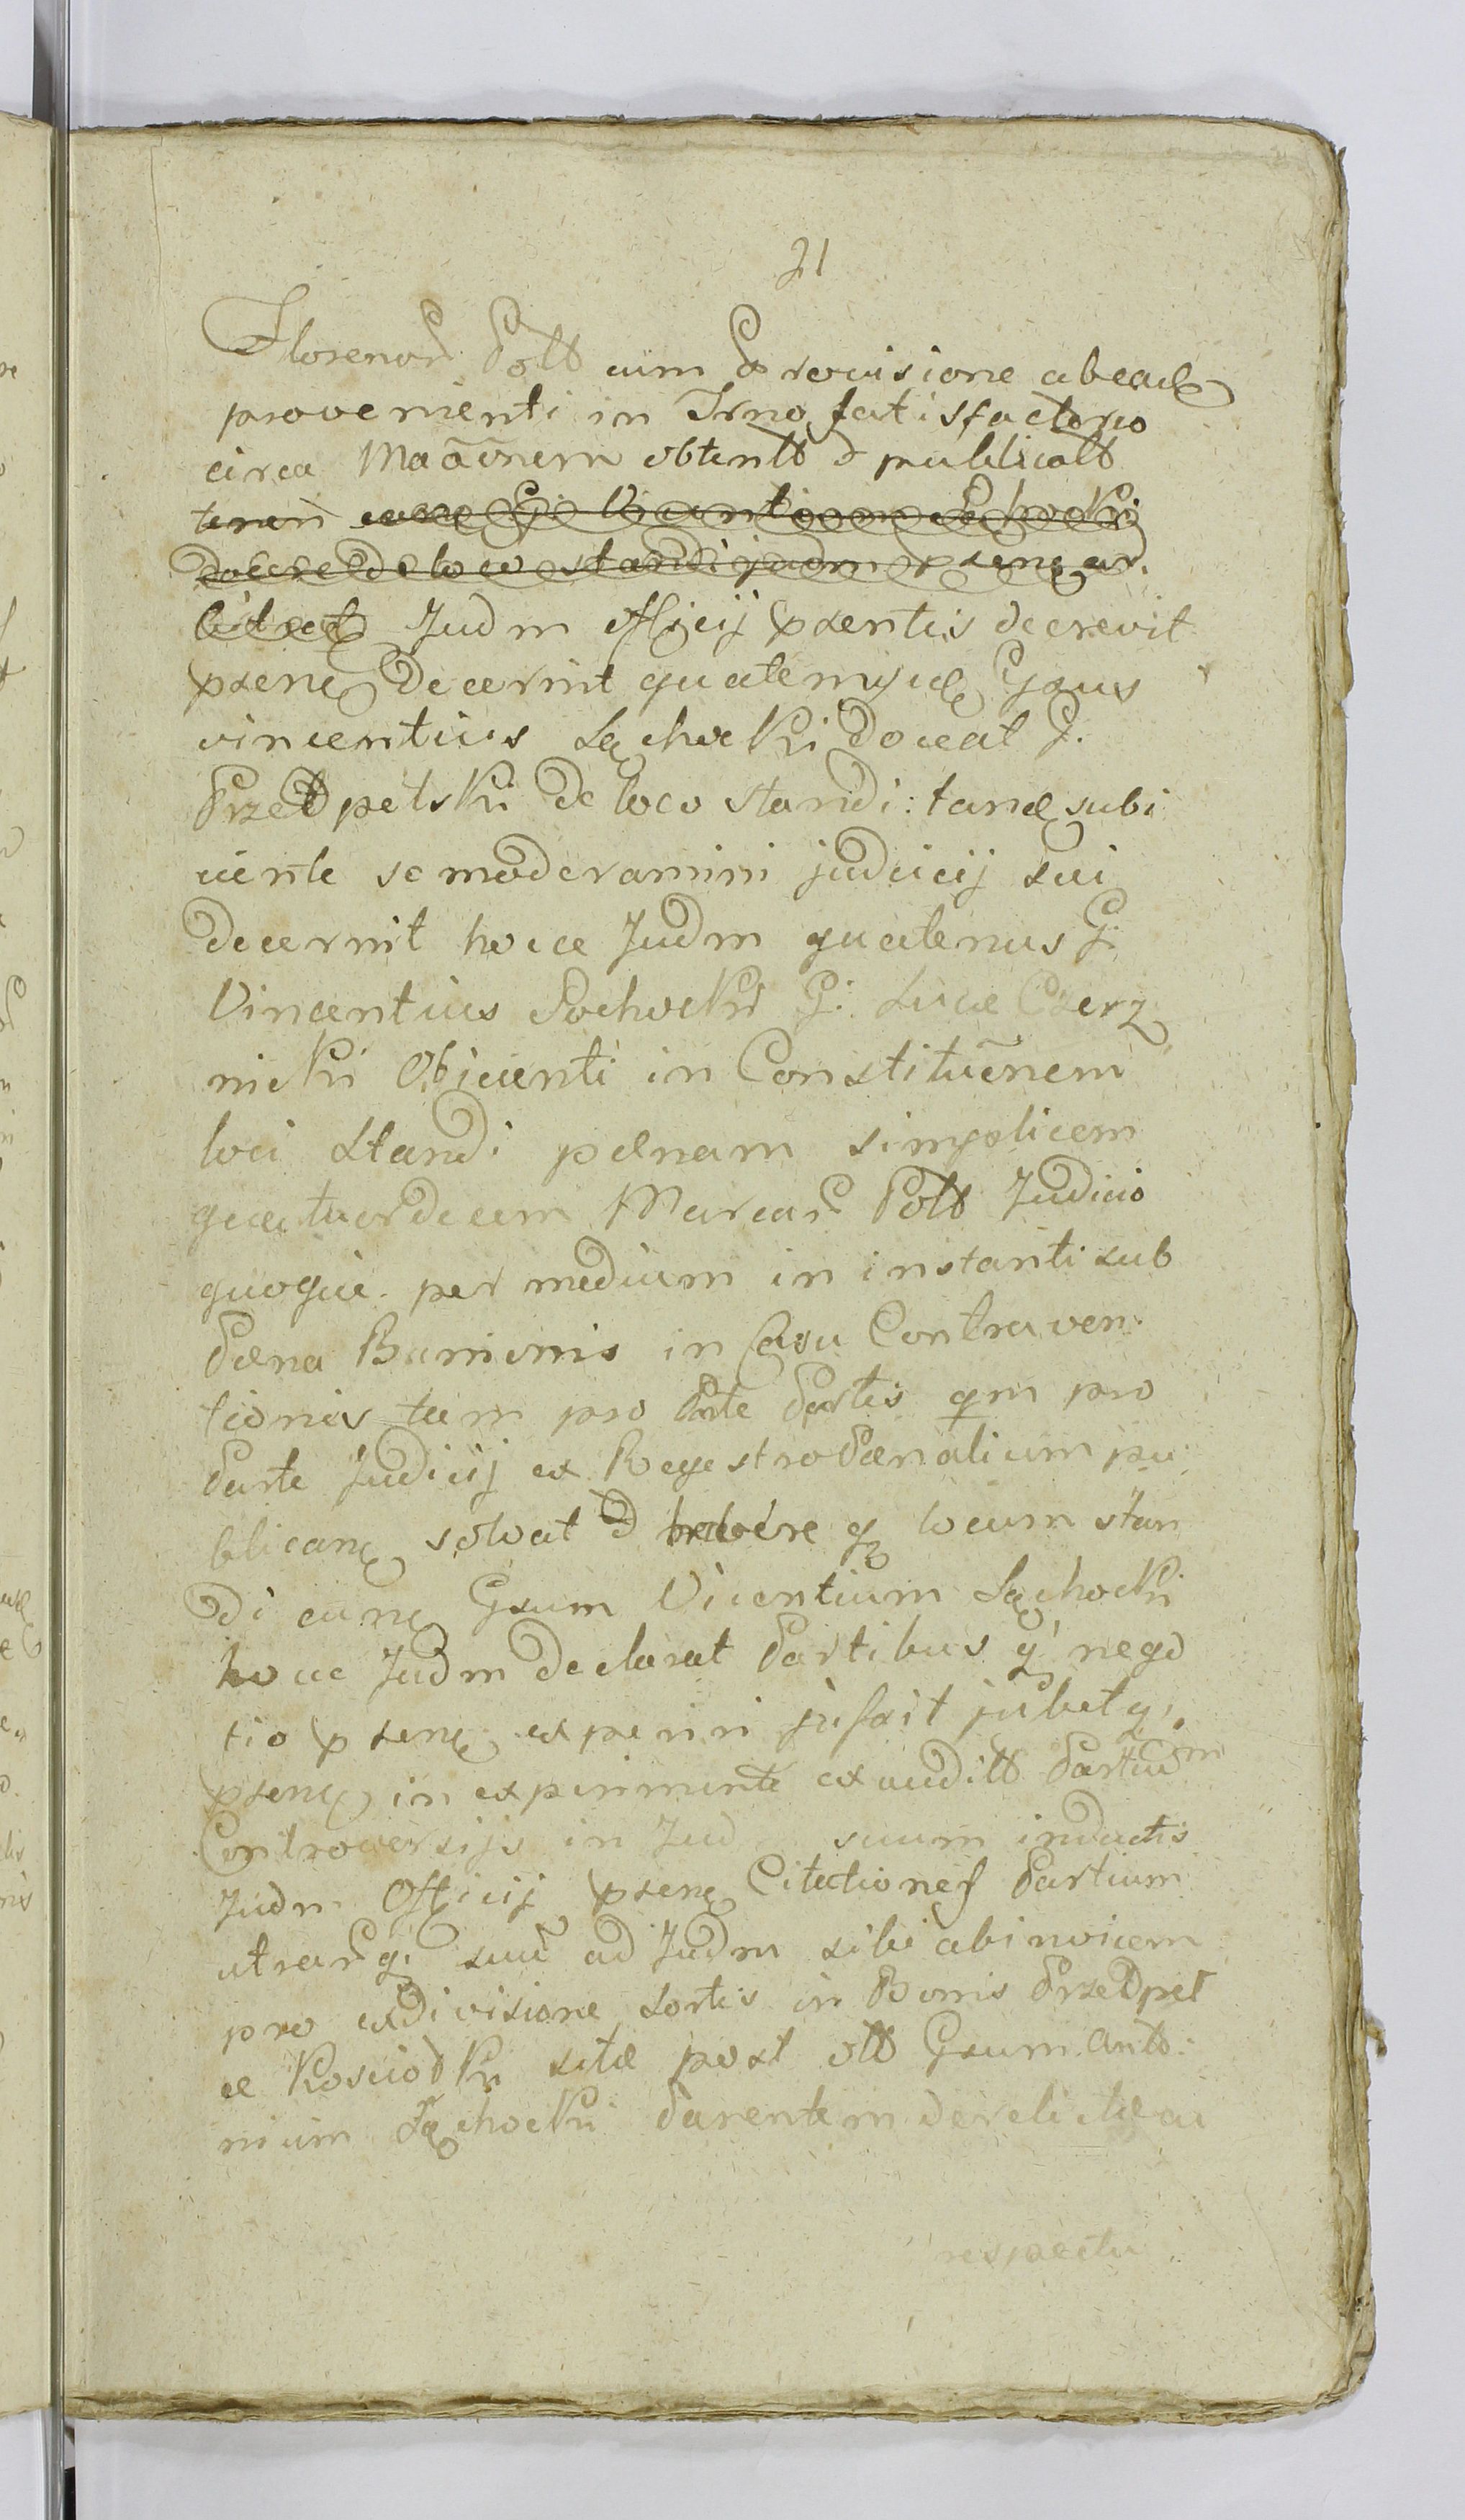 21
Florenor Poll cum Provisione ab eadȩ
provenienti in Trno satisfactorio
circa Maāōnem obtentt & publicatt
tenen
Judm Officij pxsentis decrevit
pxsenȩ decernit quatenus Gsus
vincentius Sȩchocki doceat G.
Przedpełski de loco standi: tandȩ subi
ciente se moderamini judicij sui
decernit hocce Judm quatenus G.
Vincentius Sochocki G: Lucæ Czerz
nicki Objicienti in Constituc̄nem
loci standi pœnam simplicem
quatuordecem Marcar Poll Judicio
quoque per medium in instanti sub
Pœna Bannionis in Casu Contraven
tionis tam pro Prte Partis qm pro
Parte Judicij ex Regestro Pœnalium pu
blicanȩ solvat & habere qȝ locum stan
di eunȩ Gsum Vicentium Sȩchocki
hocce Judm declarat Partibus q' nego
tio pxsenȩ experiri jussit jubetq,
pxsenȩ in experimento exauditt Partium
Controversijs in Jud suum inductis
Judm Officij pxsenȩ Citationes Partium
utrarq; suū ad Judm sibi abinvicem
pro exdivisione sortis in Bonis Przedpeł
ce Kosciołki sitæ post ott Gsum. Anto:
nium Sȩchocki Parentem derelictæ ac
respectu